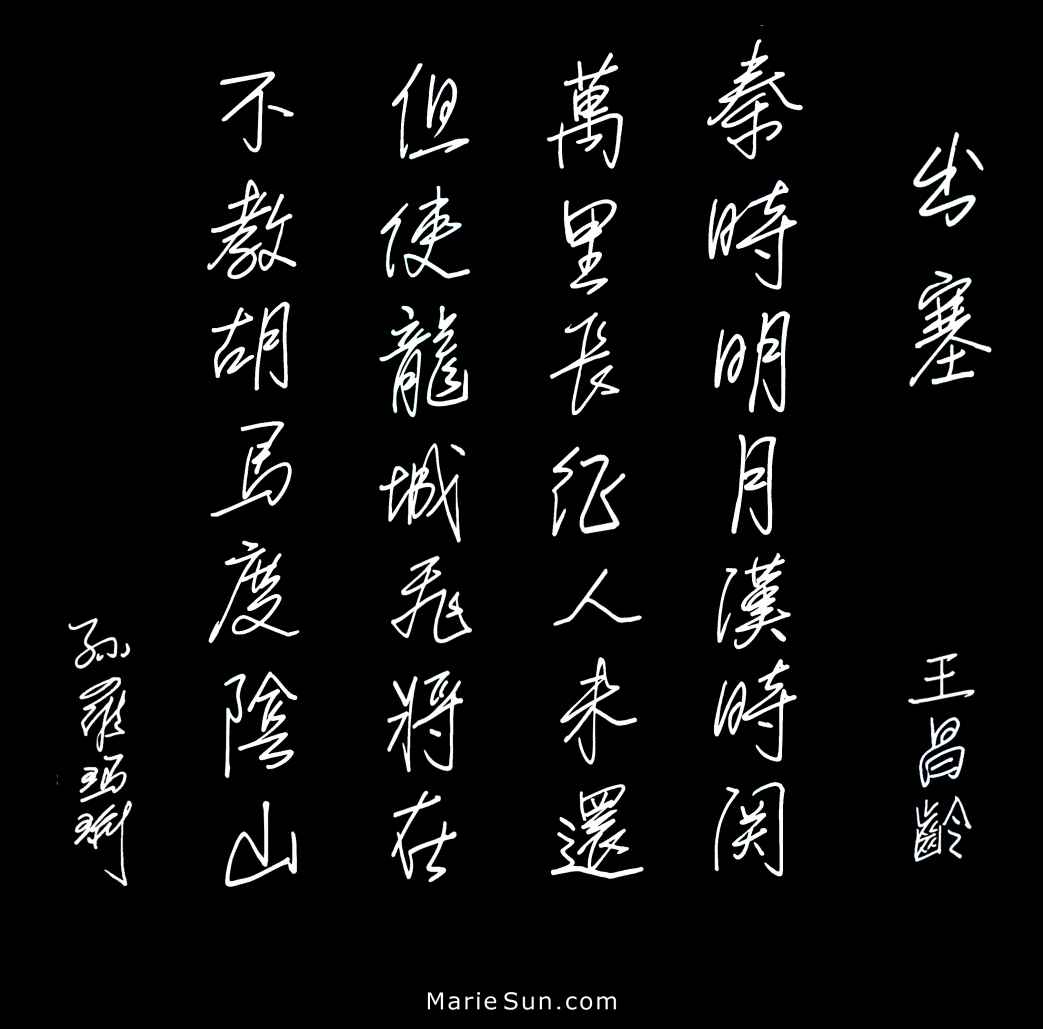 出塞
王昌齡
秦時明月漢時関
萬里長征人未還
但使龍城飛將在
不教胡馬度陰山
孫羅瑪琍
MarieSun.com